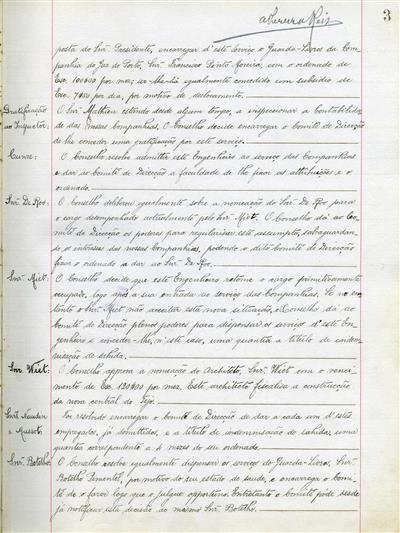 3
posta do Snr. Presidente, encarregar d'este serviço o Guarda-Livros da Com-
panhia do Gaz do Porto, Snr. Francisco Pinto Moreira, com o ordenado de
Esc. 100$00 por mez; ser-lhe-há egualmente concedido um subsidio de
Esc. 7$50 por dia, por motivo de deslocamento.
Gratificação
ao Inspector:
O Snr. Mathieu estando desde algum tempo, a inspeccionar a contabilida-
de das nossas Companhias, O Conselho decide encarregar o Comité de Direcção
de lhe conceder uma gratificação por este serviço.
O Conselho resolve admittir este Engenheiro ao serviço das Companhias
e dar ao Comité de Direcção a faculdade de lhe fixar as attribuições e o
ordenado.
Snr. De Roo:
O Conselho delibera egualmente sobre a nomeação do Snr. De Roo para
o cargo desempenhado actualmente pelo Snr. Miet. O Conselho dá ao Co-
mité de Direcção os poderes para regularisar este assumpto, salvaguardan-
do os interesses das nossas Companhias, podendo o dito Comité de Direcção
fixar o ordenado a dar ao Snr. De Roo.
Snr. Miet:
O Conselho decide que este Engenheiro retome o cargo primitivamente
occupado, logo após a sua entrada ao serviço das Companhias. Se no en-
tanto o Snr. Miet não acceitar esta nova situação, o Conselho dá ao
Comité de Direcção plenos poderes para dispensar o serviço d'este En-
genheiro e conceder-lhe, n'este caso, uma quantia a titulo de indem-
nisação de sahida.
Snr. Wiet:
O Conselho approva a nomeação do Architecto, Snr. Wiet com o venci-
mento de Esc. 120$00 por mez. Este architecto fiscalisa a construcção
da nova central do Tejo.
Foi resolvido encarregar o Comité de Direcção de dar a cada um d'estes
empregados, já demittidos, e a titulo de indemnisação de sahida, uma
quantia correspondente a 4 mezes do seu ordenado.
Snr. Botelho:
O Conselho resolve egualmente dispensar os serviços do Guarda-Livros, Snr.
Botelho Pimentel, por motivo do seu estado de saude, e encarrega o Comi-
té de o fazer logo que o julgue opportuno. Entretanto o Comité póde desde
já notificar esta decisão ao mesmo Snr. Botelho.